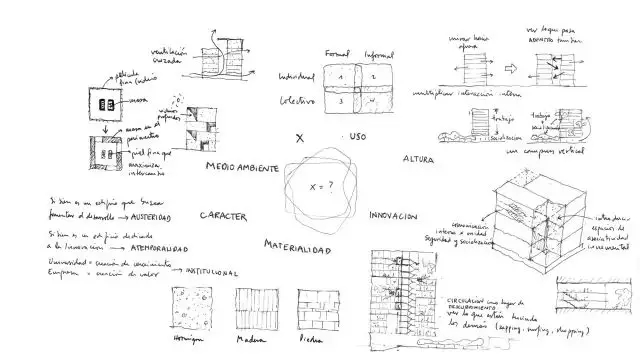 ventilación
cruzada
película
fina vidrio
masa
masa en el
perímetro
piel fina que
maximiza
intercambio
vidrios
profundos
MEDIO AMBIENTE
Formal Informal
Individual
Colectivo
1 2
3 4
X . USO
X = ?
mirar hacia
afuera
ver lo que pasa
ADENTRO también
multiplicar interacción interna
trabajo
socialización
trabajo
un campus vertical
ALTURA
Si bien es un edificio que busca
fomentar el desarrollo → AUSTERIDAD
Si bien es un edificio dedicado
a la Innovación → ATEMPORALIDAD
Universidad = creación de conocimiento
Empresa = creación de valor → INSTITUCIONAL
CARACTER
MATERIALIDAD
INNOVACION
Hormigon
Madera
Piedra
comunicación
interna x unidad
Seguridad y socialización
introducir
espacios de
asociatividad
incremental
CIRCULACION como lugar de
DESCUBRIMIENTO
ver lo que están haciendo
los demás (zapping, surfing, shopping)